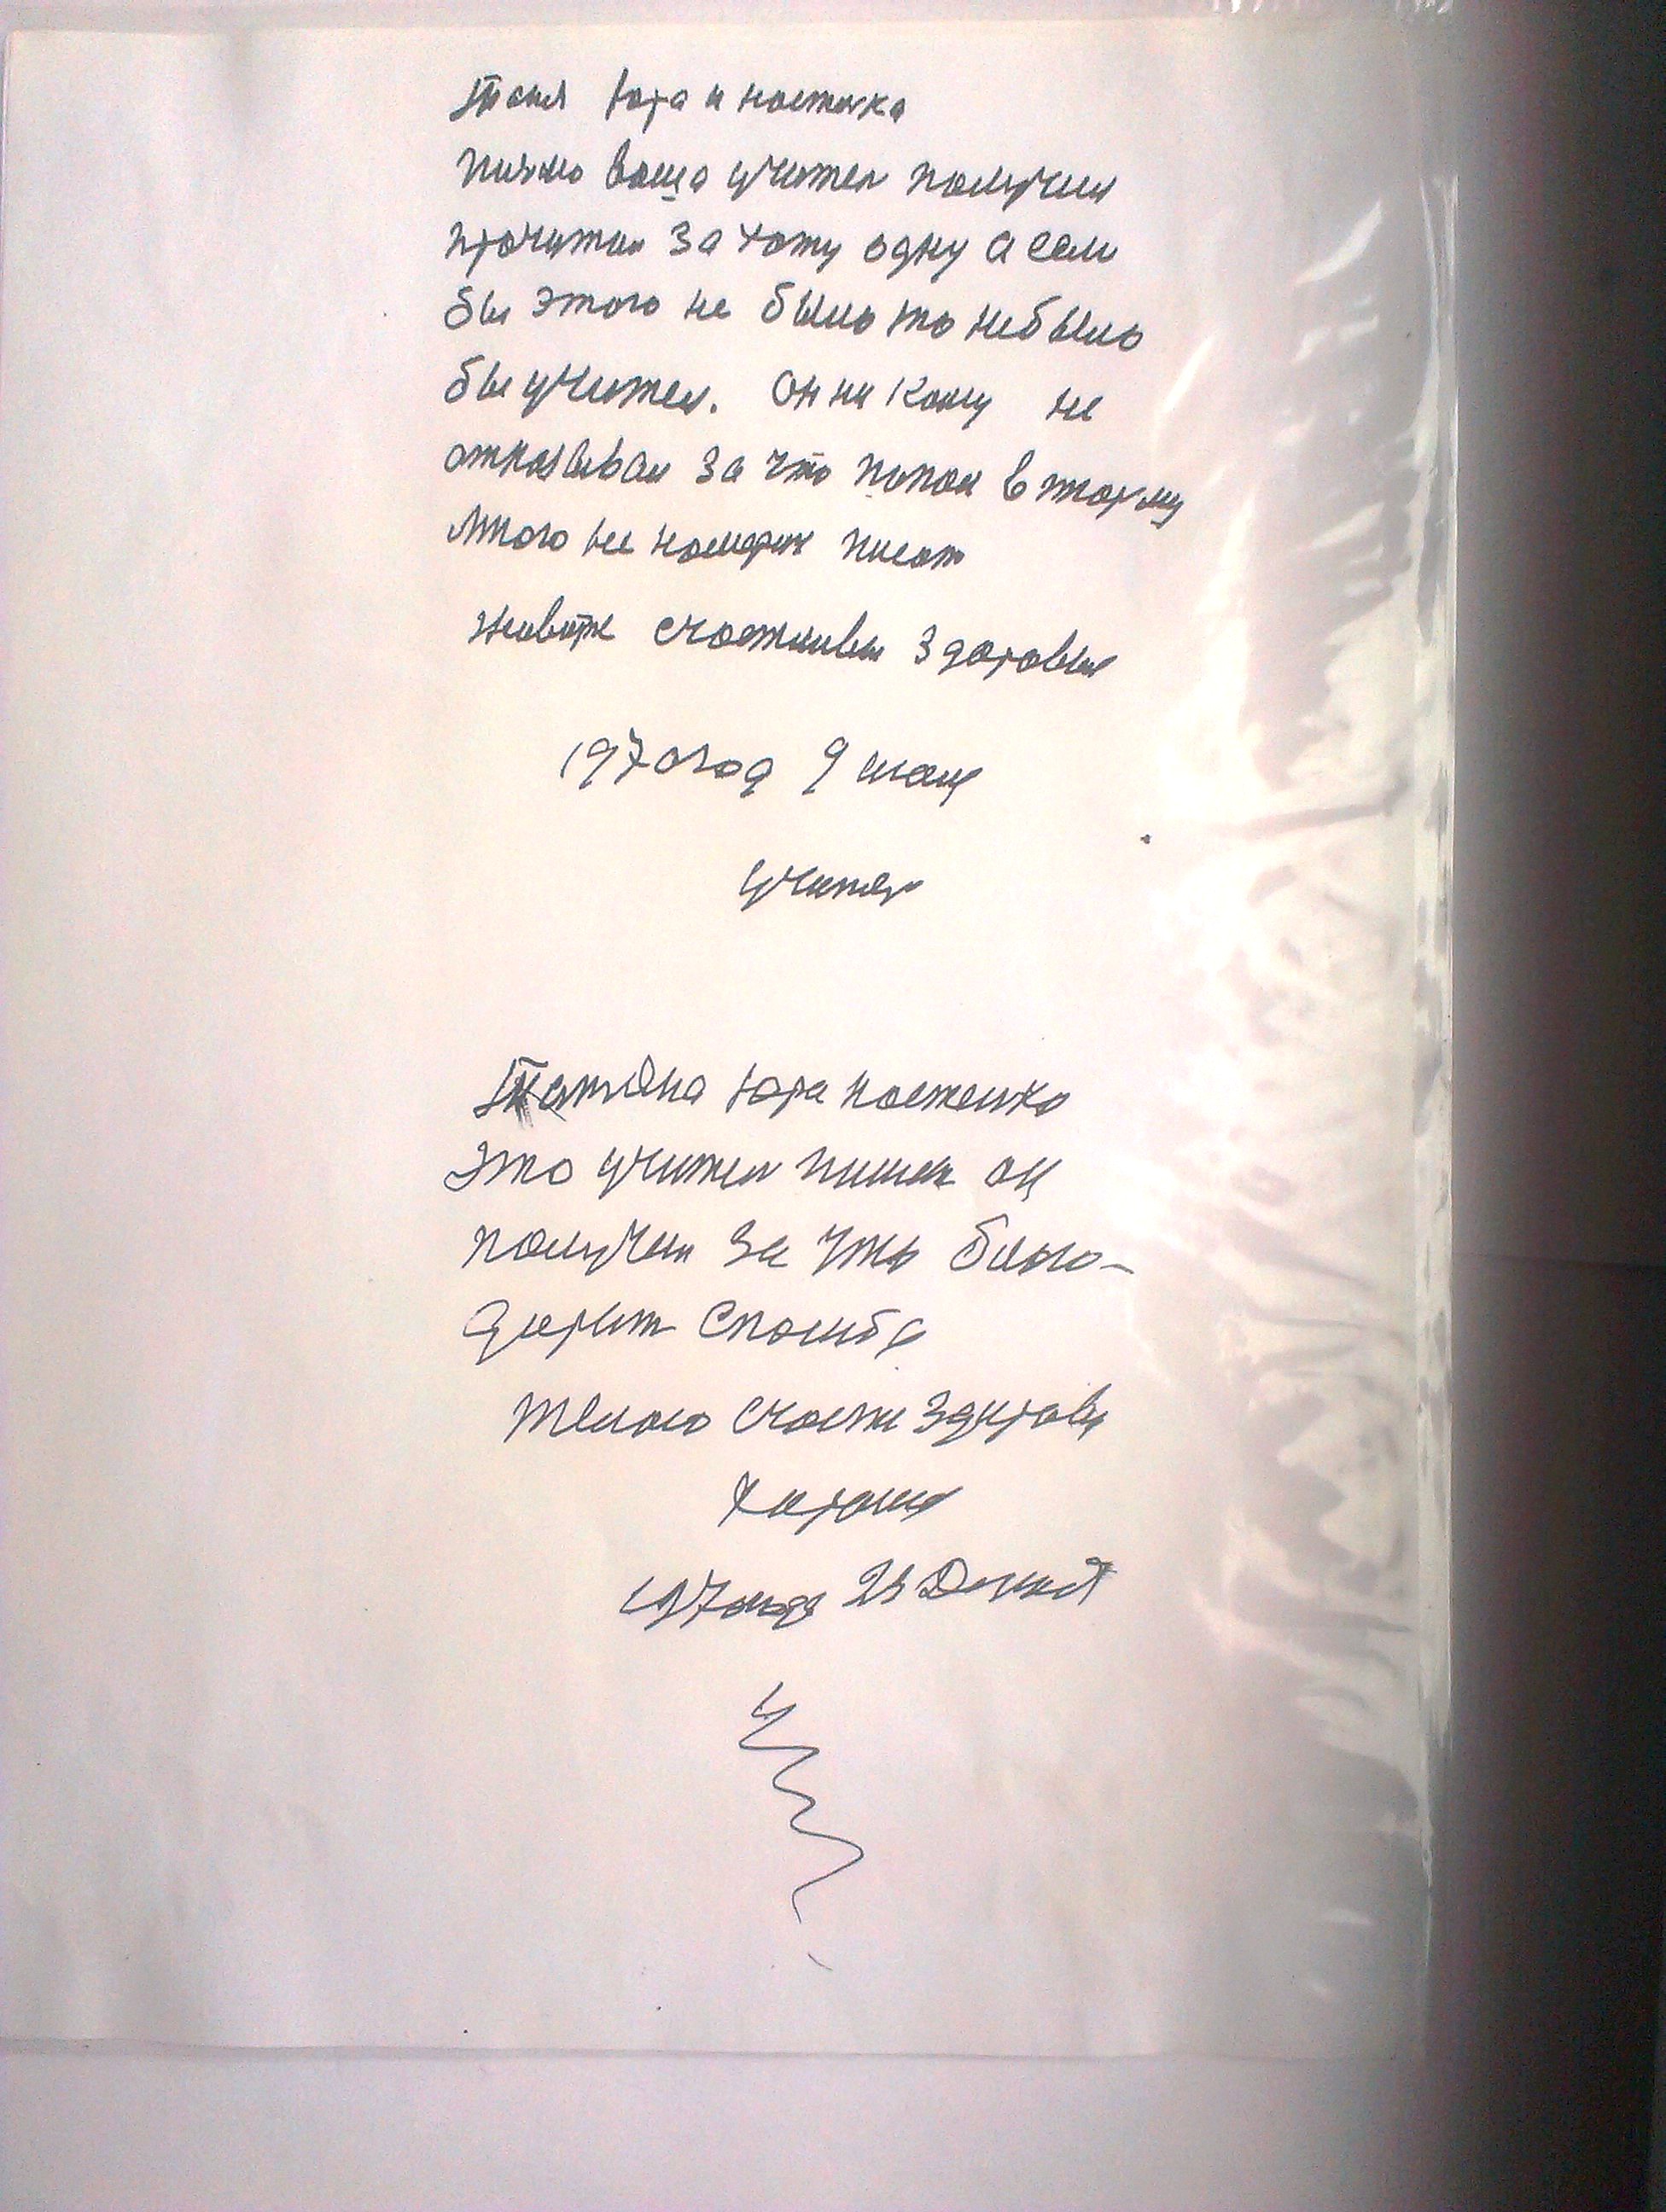 Таня Юра и насточка
писмо ваша учител получил
прочитал за хату одну а если
бы этого не было то небыло
бы учител. он ни кому не
отказывал за что попал в тюрму
много не намерин писат
живите счастливы здоровые
1970 год 9 мая
учител
Татьяна Юра настенка
это учител пишет он
получил за что благо-
дарит спасиба
желаю счастя здоровя
1970 года 23